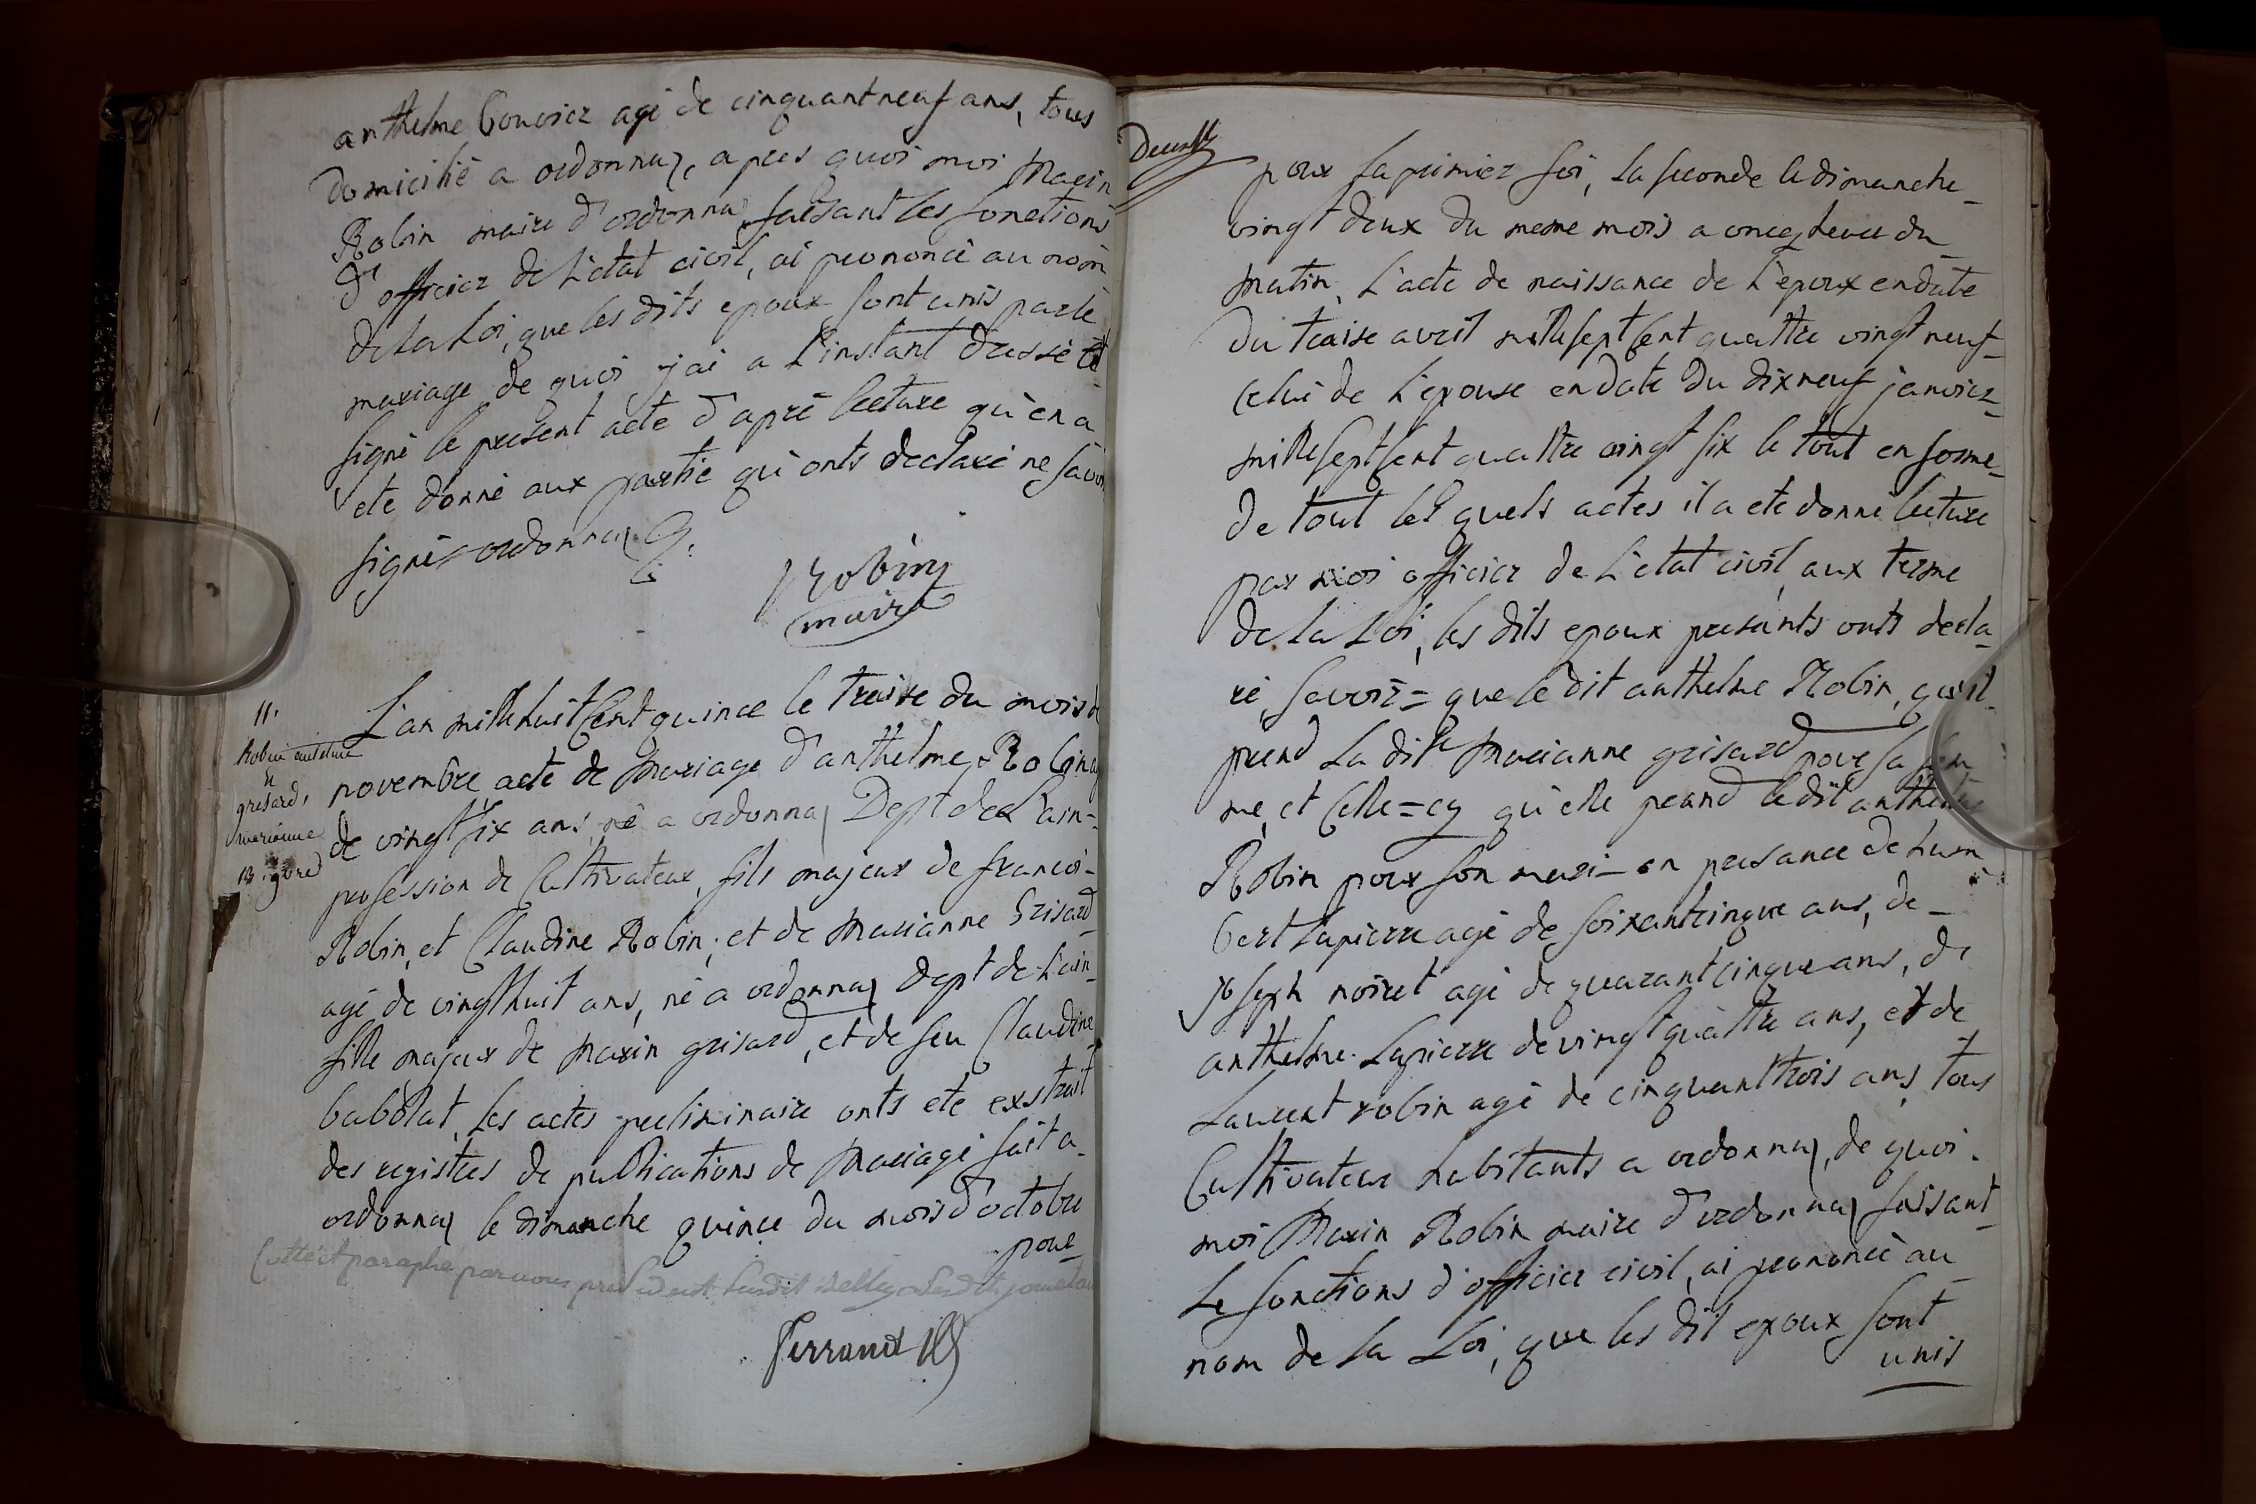 anthelme Bouvier agé de cinquantneuf ans, tous
domicilié a ordonnaz, apres quoi moi Marin
Robin maire d'ordonnaz faisant les fonctions
d'officier de L'état civil, ai prononcé au nom
de La Loi, que les dits epoux sont unis par le
mariage de quoi j'ai a L'instant dressé et
signé le present acte d'apré lecture qu'en a
eté donné aux partie qui onts declaré ne savoir
signé ordonnaz
Robin
maire
11.
Robin anthelme
et
grisard,
marianne
L'an mille huit Cent quince le traise du mois de
novembre acte de Mariage d'anthelme Robin agé
de vingt six ans, né a ordonnaz Dept de L'ain=
profession de Cultivateur, fils majeur de francoi-
Robin, et Claudine Robin; et de Marianne Grisard
agé de vingt huit ans, né a ordonnaz Dept de L'ain-
fille majeur de Marin grisard, et de feu Claudine
babolat, Les actes preliminaire onts eté exstrait
des registres de publications de Mariage fait a-
ordonnaz le dimanche quince du mois d'octobre
pour
Cotté et paraphé par nous president susdit Belley Lesdits jour et an
Ferrand
pour la primier foi, La seconde le dimanche
vingt deux du meme mois a once heures du
Matin, L'acte de naissance de L'epoux en date
du traise avril mille sept Cent quattre vingt neuf-
Celui de L'epouse en date du dixneuf janvier-
mille sept Cent quattre vingt six le tout en forme-
de tout les quels actes il a eté donné lecture
par moi officier de L'etat civil, aux terme
de La Loi, les dits epoux presents onts decla-
ré, savoir= que le dit anthelme Robin, qu'il
prend La dite Marianne grisard pour sa fem
me, et Celle=cy qu'elle prand le dit anthelme
Robin pour son mari- en presance de hum
bert Lapierre agé de soixantcinque ans, de-
joseph noiret agé de quarantcinque ans, de
anthelme Lapierre de vingt quattre ans, et de
Laurent robin agé de cinquanttrois ans, tous
Cultivateur habitants a ordonnaz, de quoi.
moi Marin Robin maire d'ordonnaz faissant-
Le fonctions d'officier civil, ai prononcé au
nom de la Loi, que les dit epoux sont
unis